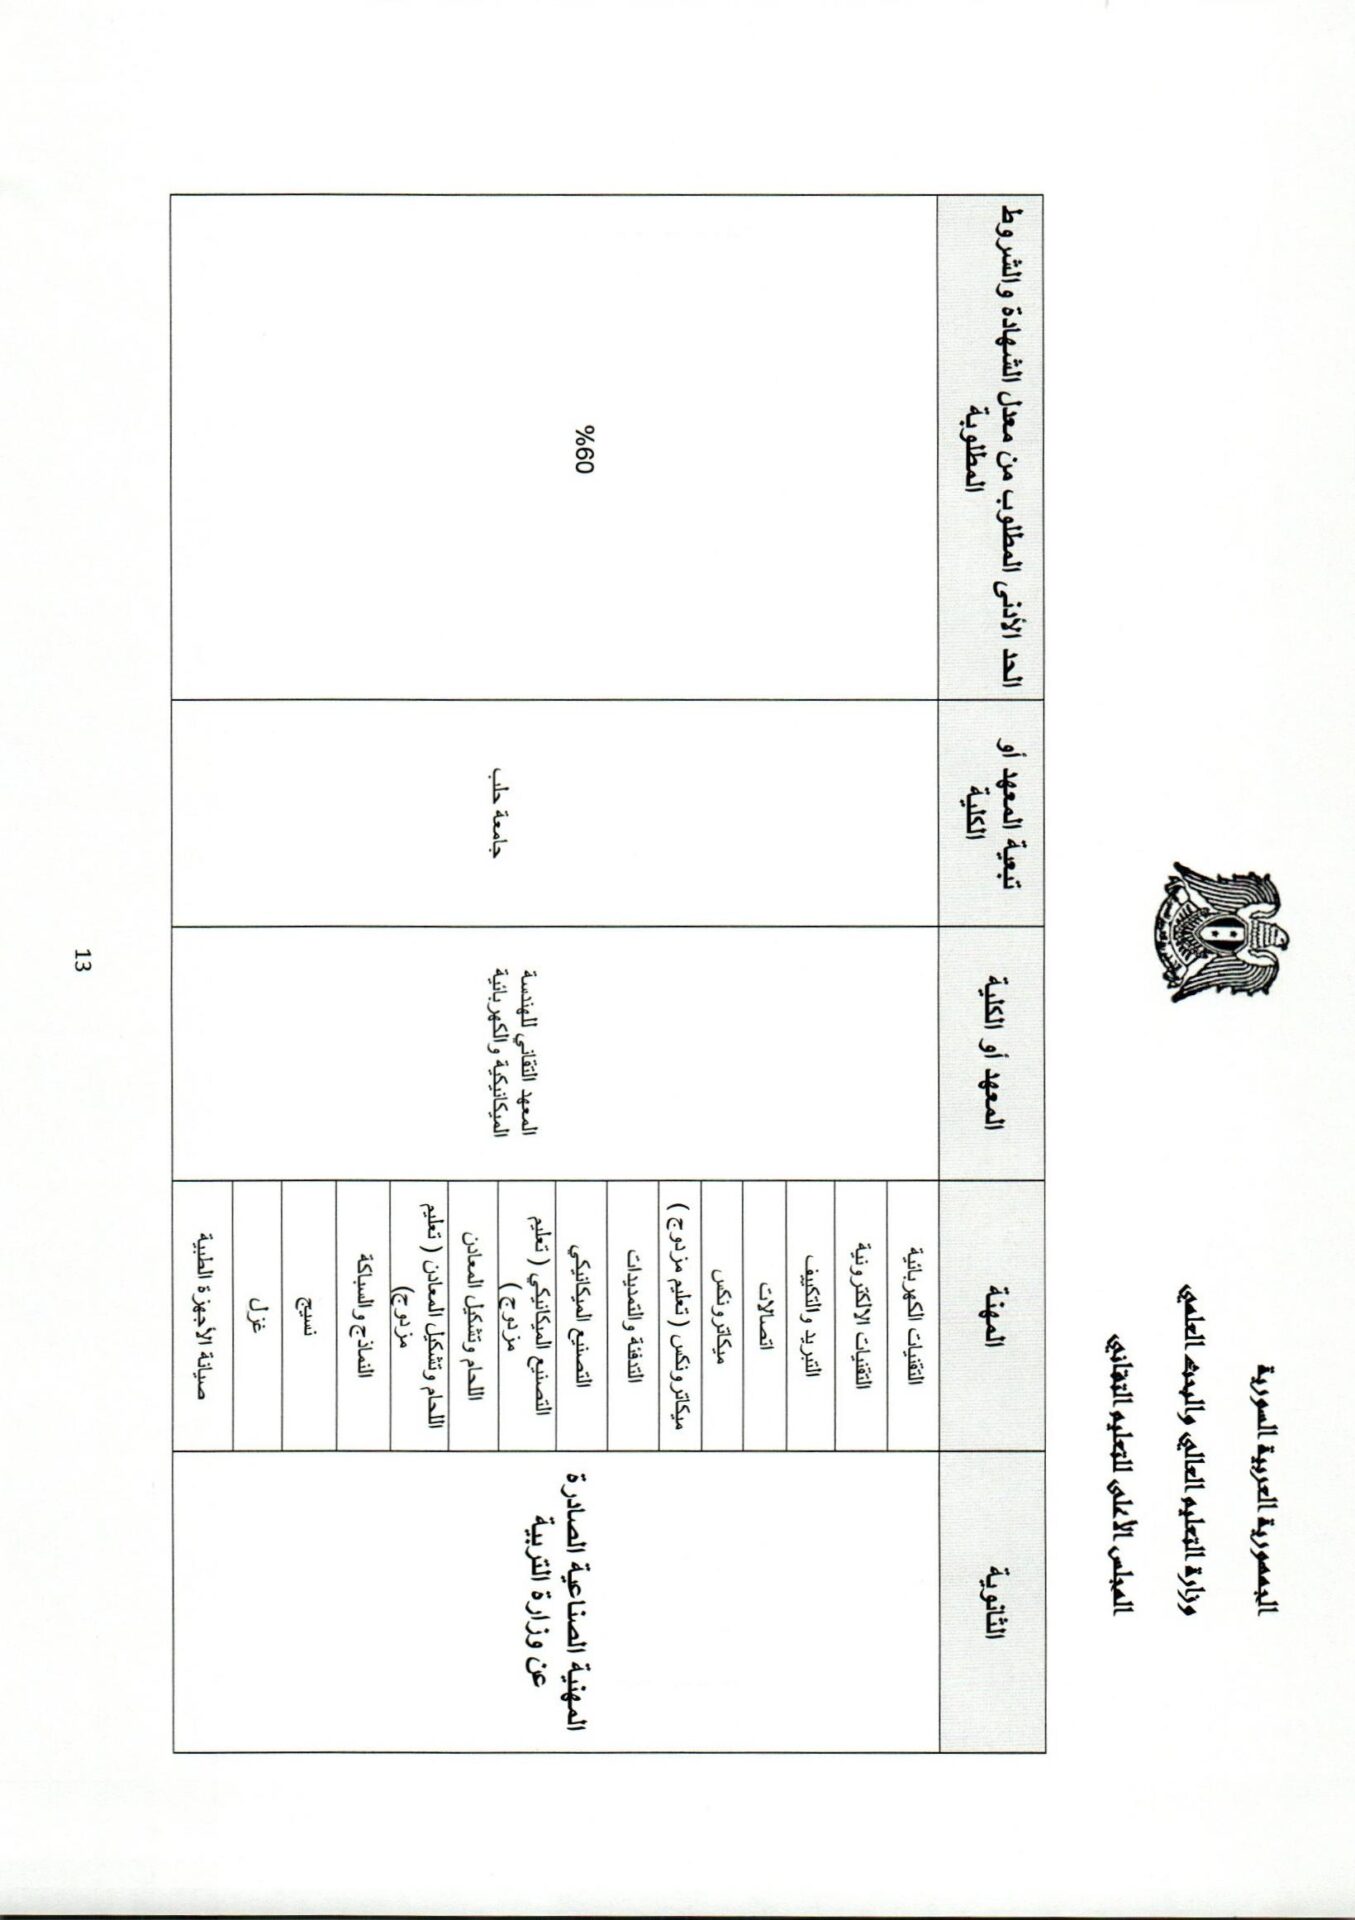 الجمهورية العربية السورية
وزارة التعليم العالي والبحث العلمي
المجلس الأعلى للتعليم التقاني
الثانوية
المهنة
المعهد أو الكلية
تبعية المعهد أو
الكلية
الحد الأدنى المطلوب من معدل الشهادة والشروط
المطلوبة
المهنية الصناعية الصادرة
عن وزارة التربية
التقنيات الكهربائية
التقنيات الالكترونية
التبريد والتكييف
اتصالات
ميكاترونكس
ميكاترونكس ( تعليم مزدوج )
التدفئة والتمديدات
التصنيع الميكانيكي
التصنيع الميكانيكي ( تعليم
مزدوج )
اللحام وتشكيل المعادن
اللحام وتشكيل المعادن ( تعليم
مزدوج)
النماذج والسباكة
نسيج
غزل
صيانة الأجهزة الطبية
المعهد التقاني للهندسة
الميكانيكية والكهربائية
جامعة حلب
%60
13